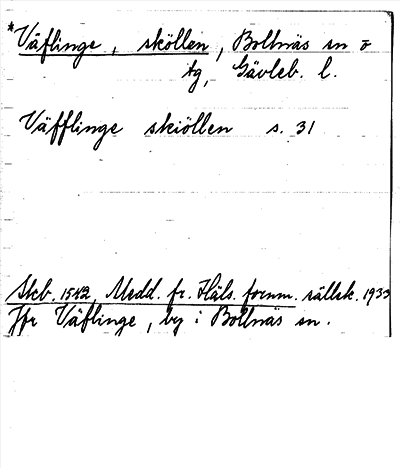 *Väflinge, sköllen, Bollnäs sn o
tg, Gävleb. l.
Väfflinge skiöllen s. 31
Skb. 1542, Medd. fr. Häls. fornm. sällsk. 1933
Jfr Väflinge, by i Bollnäs sn.